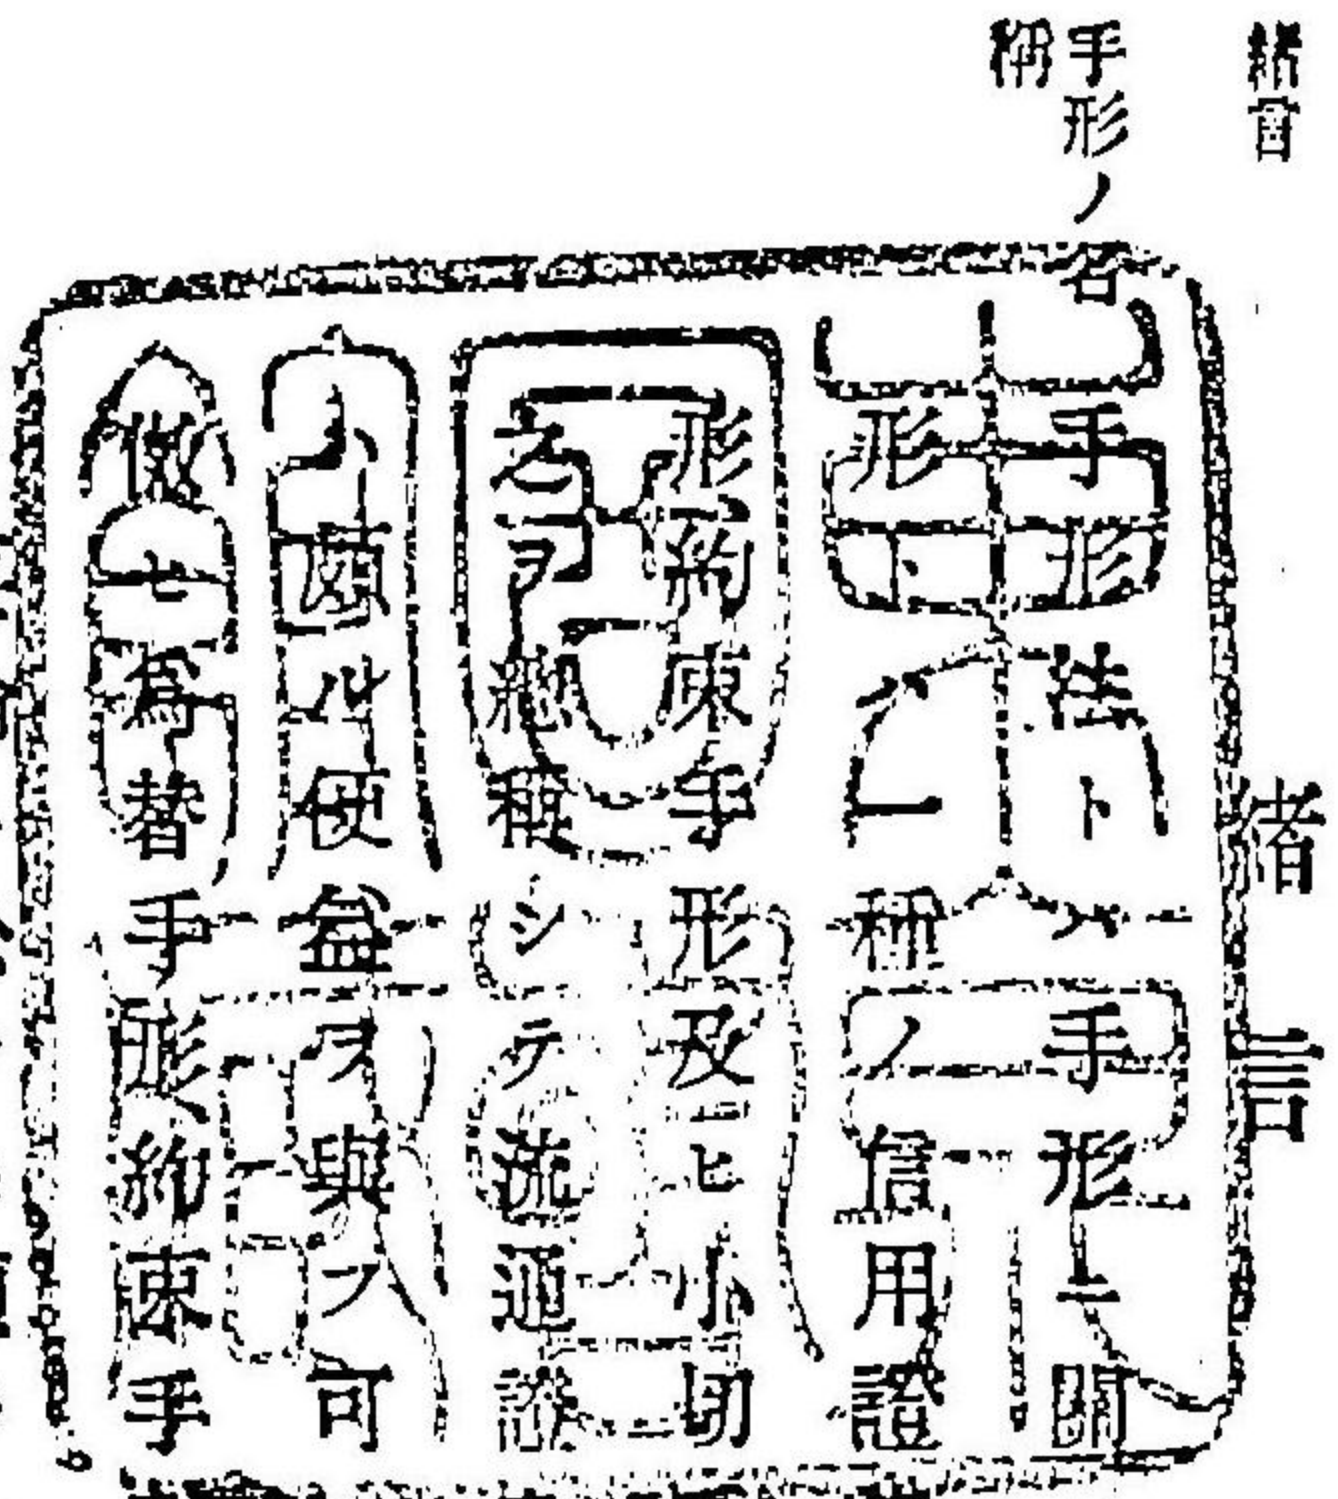 緒言
手形ノ名
稱
緒言
手形法トハ手形ニ關
形トハ一種ノ信用證
形約束手形及ヒ小切
之ヲ總稱シテ流通證
小頗ル便益ヲ與フ可
倣七爲替手形約束手